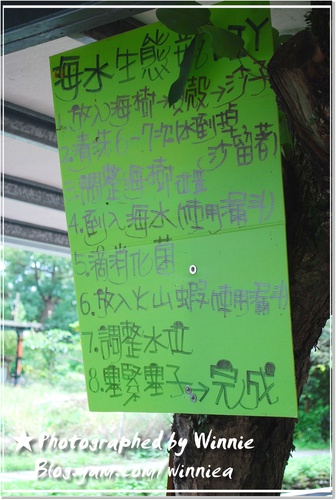 海水生態瓶DIY
1.放入海樹→貝殼→沙子
2.清洗6~7次(水倒掉
沙留著)
3.調整海樹位置
4.倒入海水(使用漏斗)
5.滴消化菌
6.放入火山蝦(使用漏斗)
7.調整水位
8.塞緊塞子→完成
★ Photographed by Winnie
Blog.yam.com/winniea